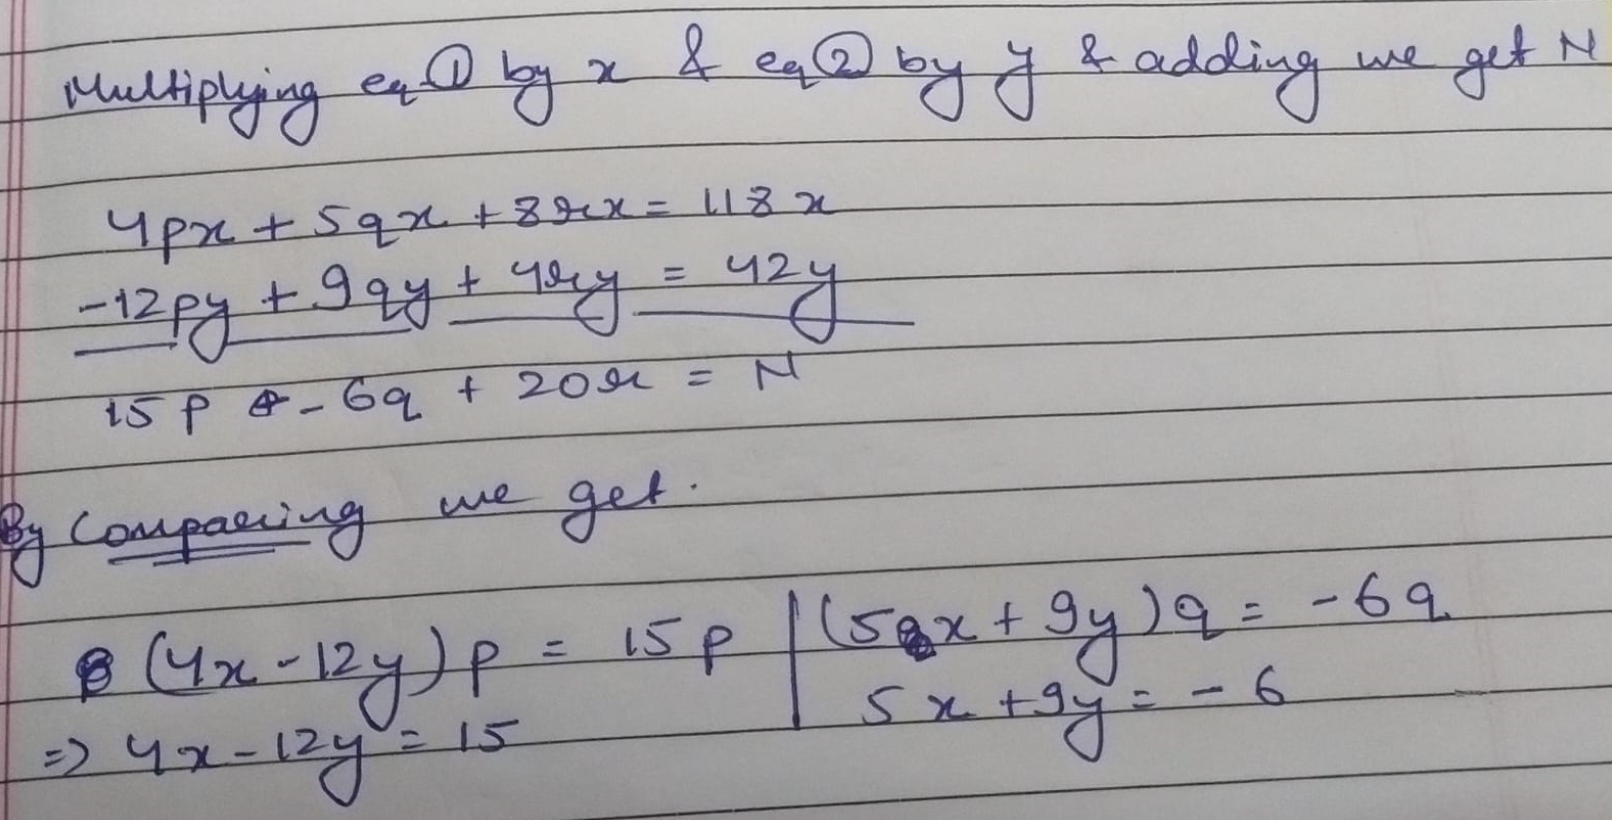 Multiplying eq ① by x & eq ② by y & adding we get N
4px + 5qx + 8rx = 118x
-12py + 9qy + 4ry = 42y
15p - 6q + 20r = N
By Comparing we get.
(4x-12y)p = 15p | (5x + 9y)q = -6q
=> 4x-12y = 15 | 5x + 9y = -6